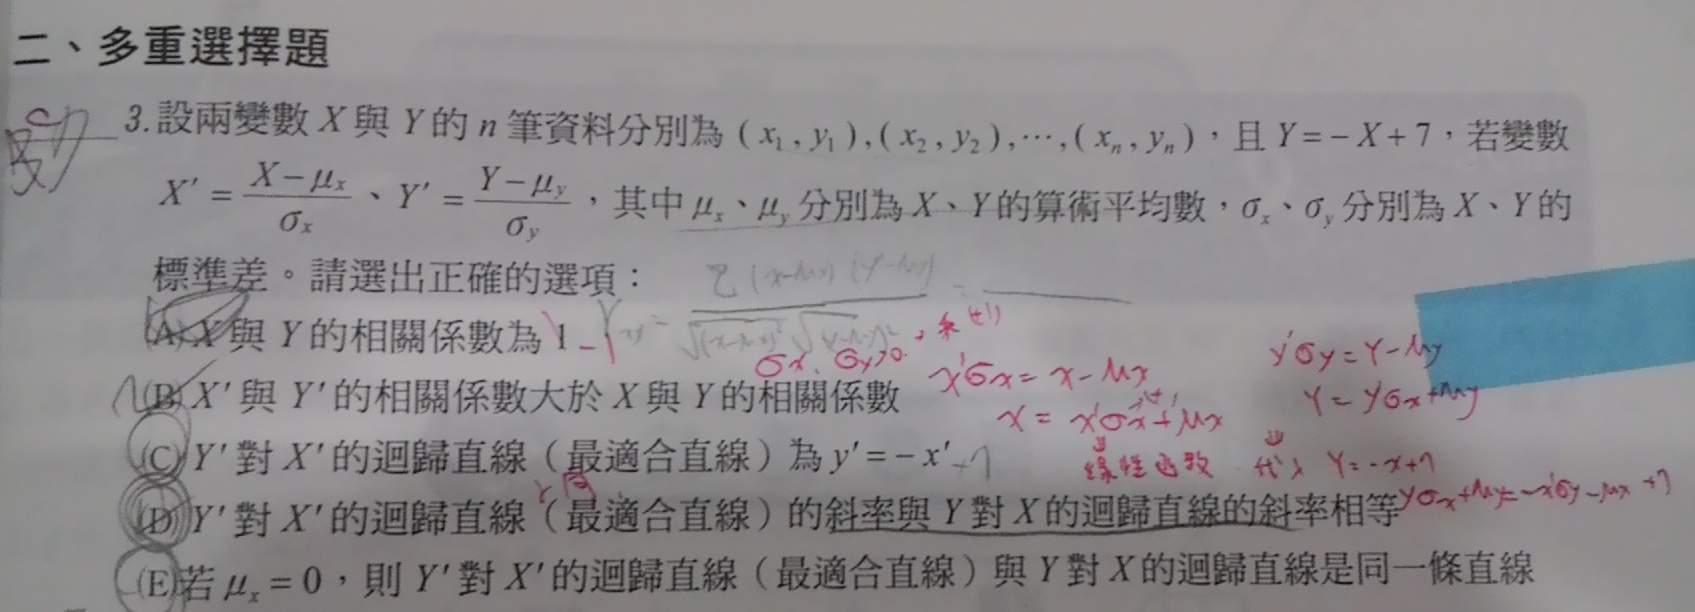 二、多重選擇題
3.設兩變數 X 與 Y 的 n 筆資料分別為 (x₁, y₁), (x₂, y₂), ⋯, (xₙ, yₙ)，且 Y = − X + 7，若變數
X′ = (X − μₓ)/σₓ、Y′ = (Y − μᵧ)/σᵧ，其中 μₓ、μᵧ 分別為 X、Y 的算術平均數，σₓ、σᵧ 分別為 X、Y 的
標準差。請選出正確的選項：
(A) X 與 Y 的相關係數為 1
σx, σy>0
(B) X′ 與 Y′ 的相關係數大於 X 與 Y 的相關係數
x'σx = x - μx
y'σy = Y - μy
x = x'σx + μx
(C) Y′ 對 X′ 的迴歸直線（最適合直線）為 y′ = − x′ +7
線性函數
代入 Y = -x+7
(D) Y′ 對 X′ 的迴歸直線（最適合直線）的斜率與 Y 對 X 的迴歸直線的斜率相等
(E) 若 μₓ = 0，則 Y′ 對 X′ 的迴歸直線（最適合直線）與 Y 對 X 的迴歸直線是同一條直線